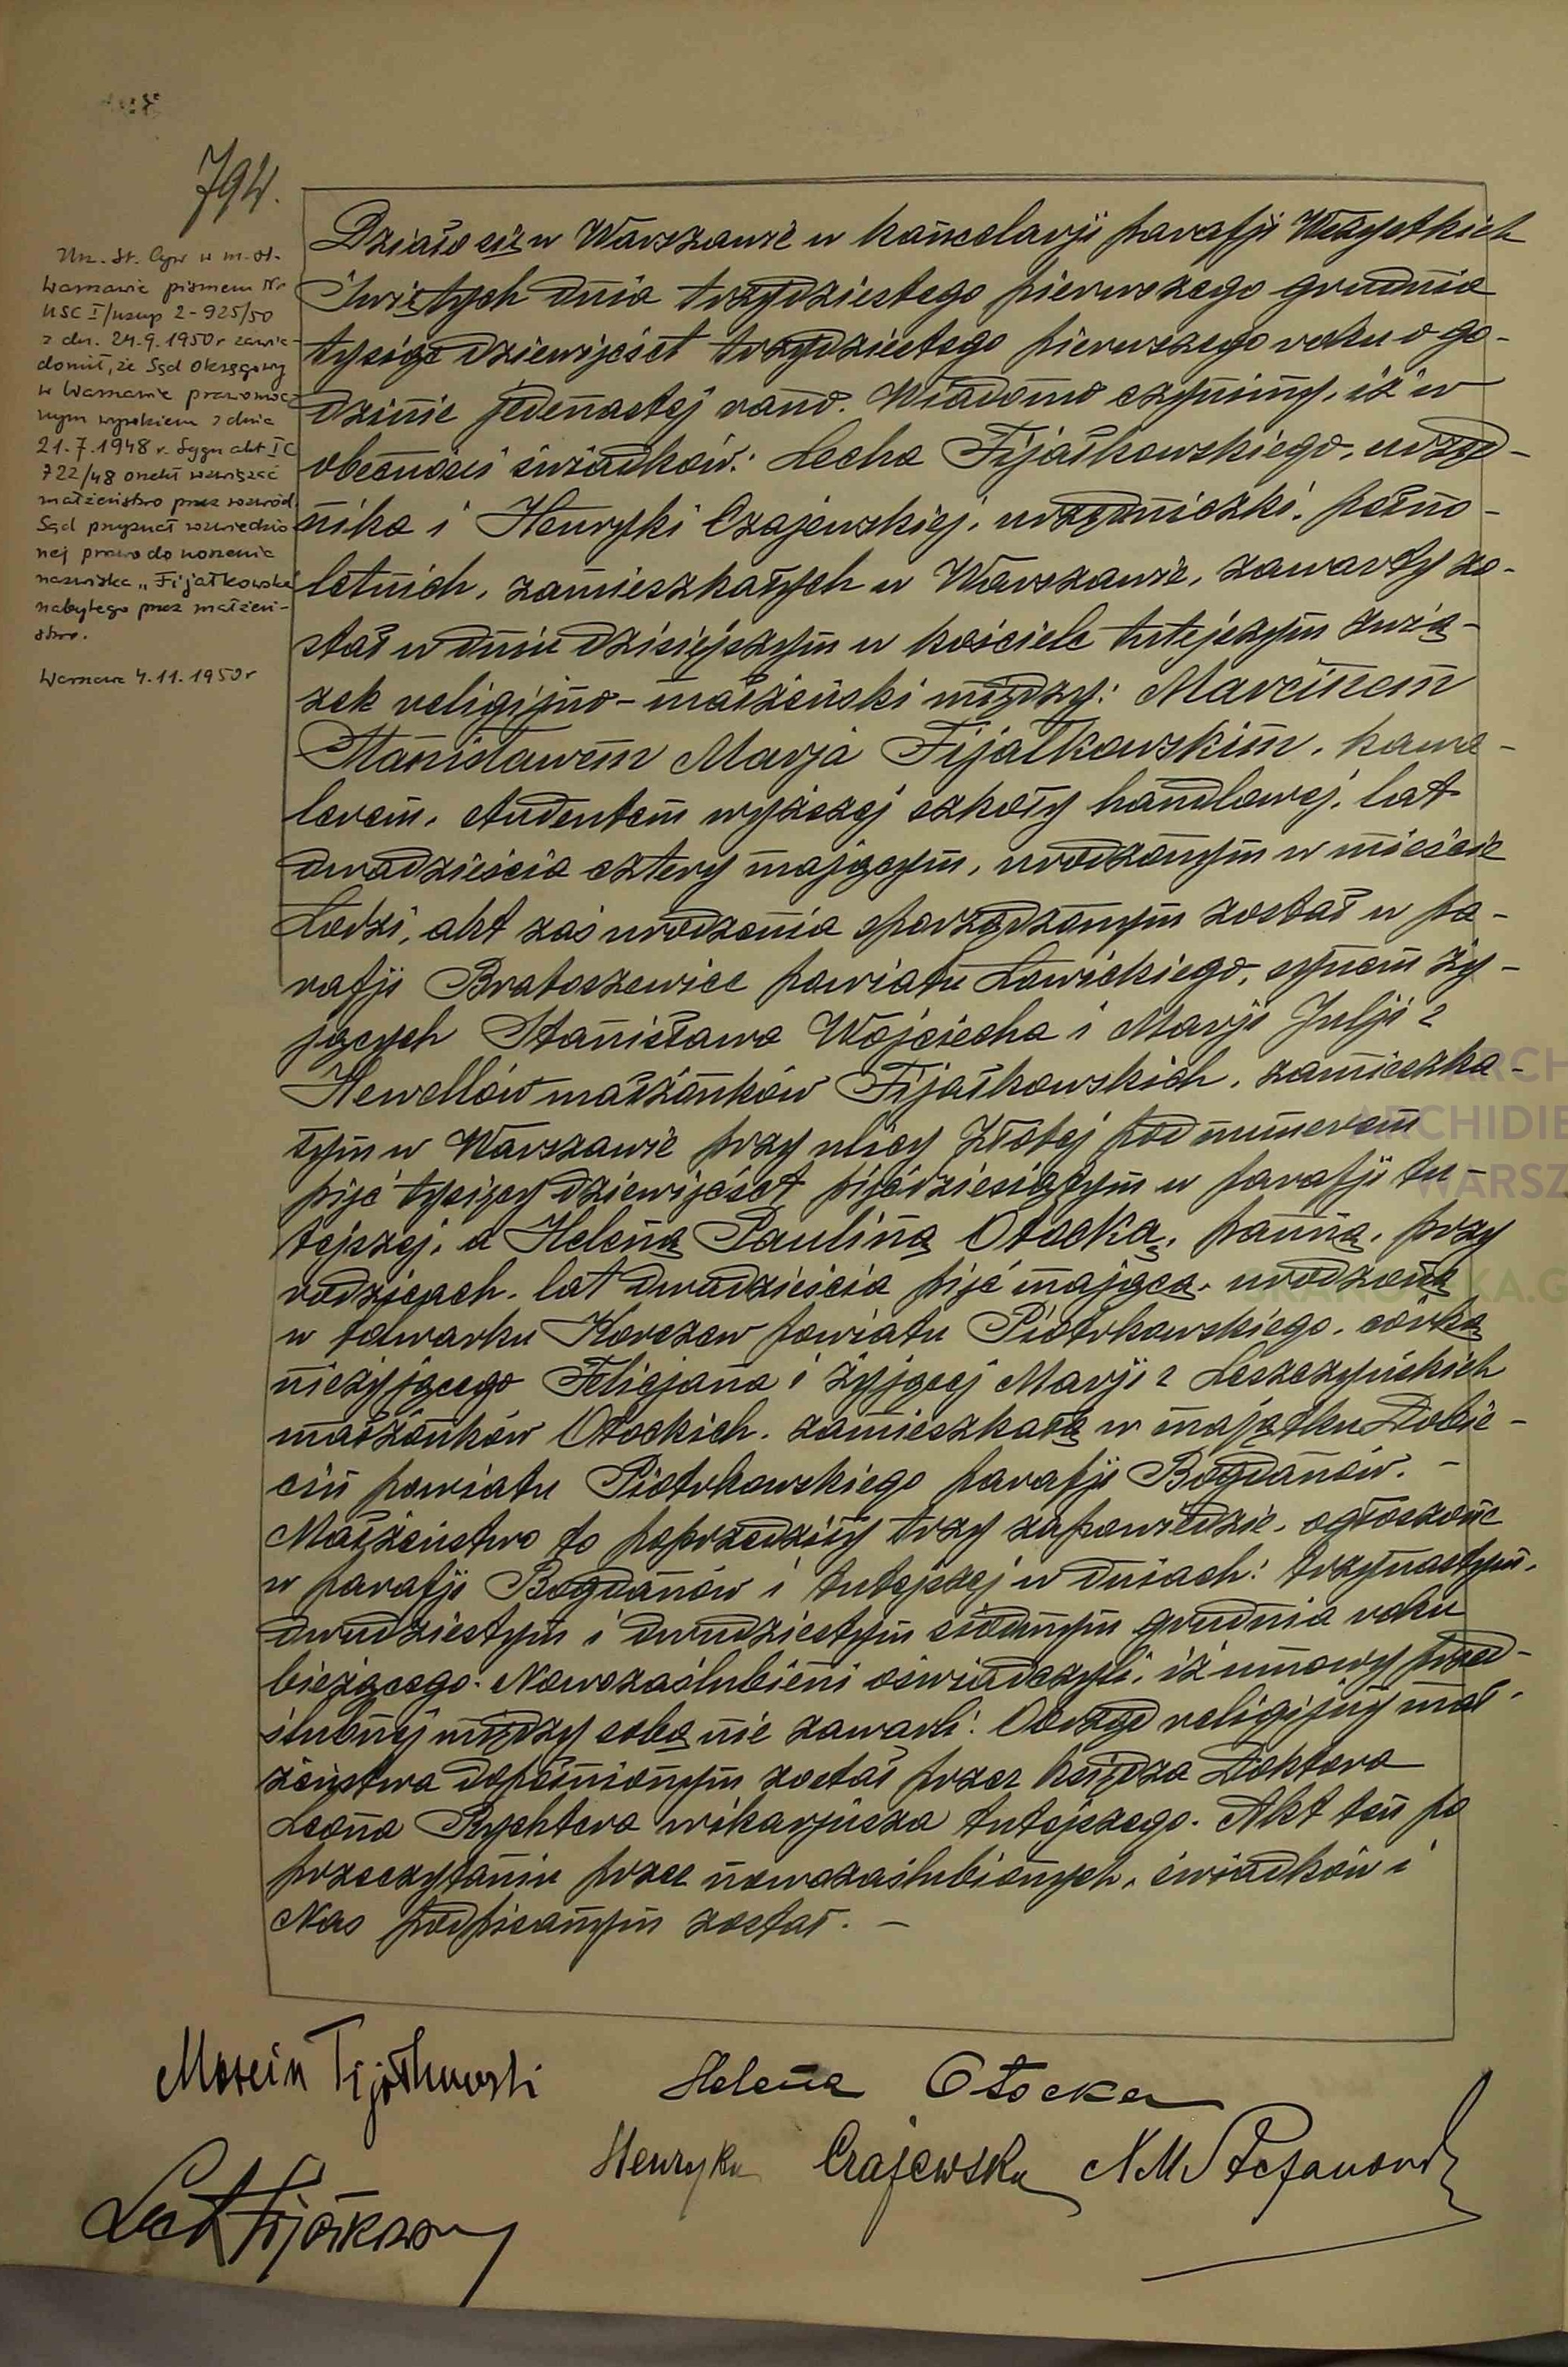 794.
Urz. St. Cyw w m. st.
Warszawie pismem Nr
USC I/usup 2-925/50
z dn. 24.9.1950 r zawia-
domił, że Sąd Okręgowy
w Warszawie prawomoc-
nym wyrokiem z dnia
21.7.1948 r. Sygn akt I C
722/48 orzekł rozwiązać
małżeństwo przez rozwód.
Sąd przyznał rozwiedzio-
nej prawo do noszenia
nazwiska „Fijałkowska"
nabytego przez małżeń-
stwo.
Warszawa 4.11.1950 r
Działo się w Warszawie w kancelarji parafji Wszystkich
Świętych dnia trzydziestego pierwszego grudnia
tysiąc dziewięćset trzydziestego pierwszego roku o go-
dzinie jedenastej rano. Wiadomo czynimy, iż w
obecności świadków: Lecha Fijałkowskiego, urzęd-
nika i Henryki Czajewskiej, urzędniczki, pełno-
letnich, zamieszkałych w Warszawie, zawarty zo-
stał w dniu dzisiejszym w kościele tutejszym zwią-
zek religijno-małżeński między: Marcinem
Stanisławem Marja Fijałkowskim, kawa-
lerem, studentem wyższej szkoły handlowej, lat
dwadzieścia cztery mającym, urodzonym w mieście
Łodzi, akt zaś urodzenia sporządzonym został w pa-
rafji Bratoszewice powiatu Łowickiego, synem ży-
jących Stanisława Wojciecha i Marji Julji z
Hewellów małżonków Fijałkowskich, zamieszka-
łym w Warszawie przy ulicy Złotej pod numerem
pięć tysięcy dziewięćset pięćdziesiątym w parafji tu-
tejszej, a Heleną Pauliną Otocką, panną, przy
rodzicach, lat dwadzieścia pięć mającą, urodzoną
w folwarku Korczew powiatu Piotrkowskiego, córką
nieżyjącego Felicjana i żyjącej Marji z Leszczyńskich
małżonków Otockich, zamieszkałą w majątku Dobie-
cin powiatu Piotrkowskiego parafji Bogdanów. -
Małżeństwo to poprzedziły trzy zapowiedzie, ogłoszone
w parafji Bogdanów i tutejszej w dniach: trzynastym,
dwudziestym i dwudziestym siódmym grudnia roku
bieżącego. Nowozaślubieni oświadczyli, iż umowy przed-
ślubnej między sobą nie zawarli. Obrzęd religijny mał-
żeństwa dopełnionym został przez księdza Doktora
Leona Rychtera wikarjusza tutejszego. Akt ten po
przeczytaniu przez nowozaślubionych, świadków i
Nas podpisanym został. -
Marcin Fijałkowski Helena Otocka
Henryka Czajewska
Lech Fijałkowski
ARCH
ARCHIDIE
WARSZ